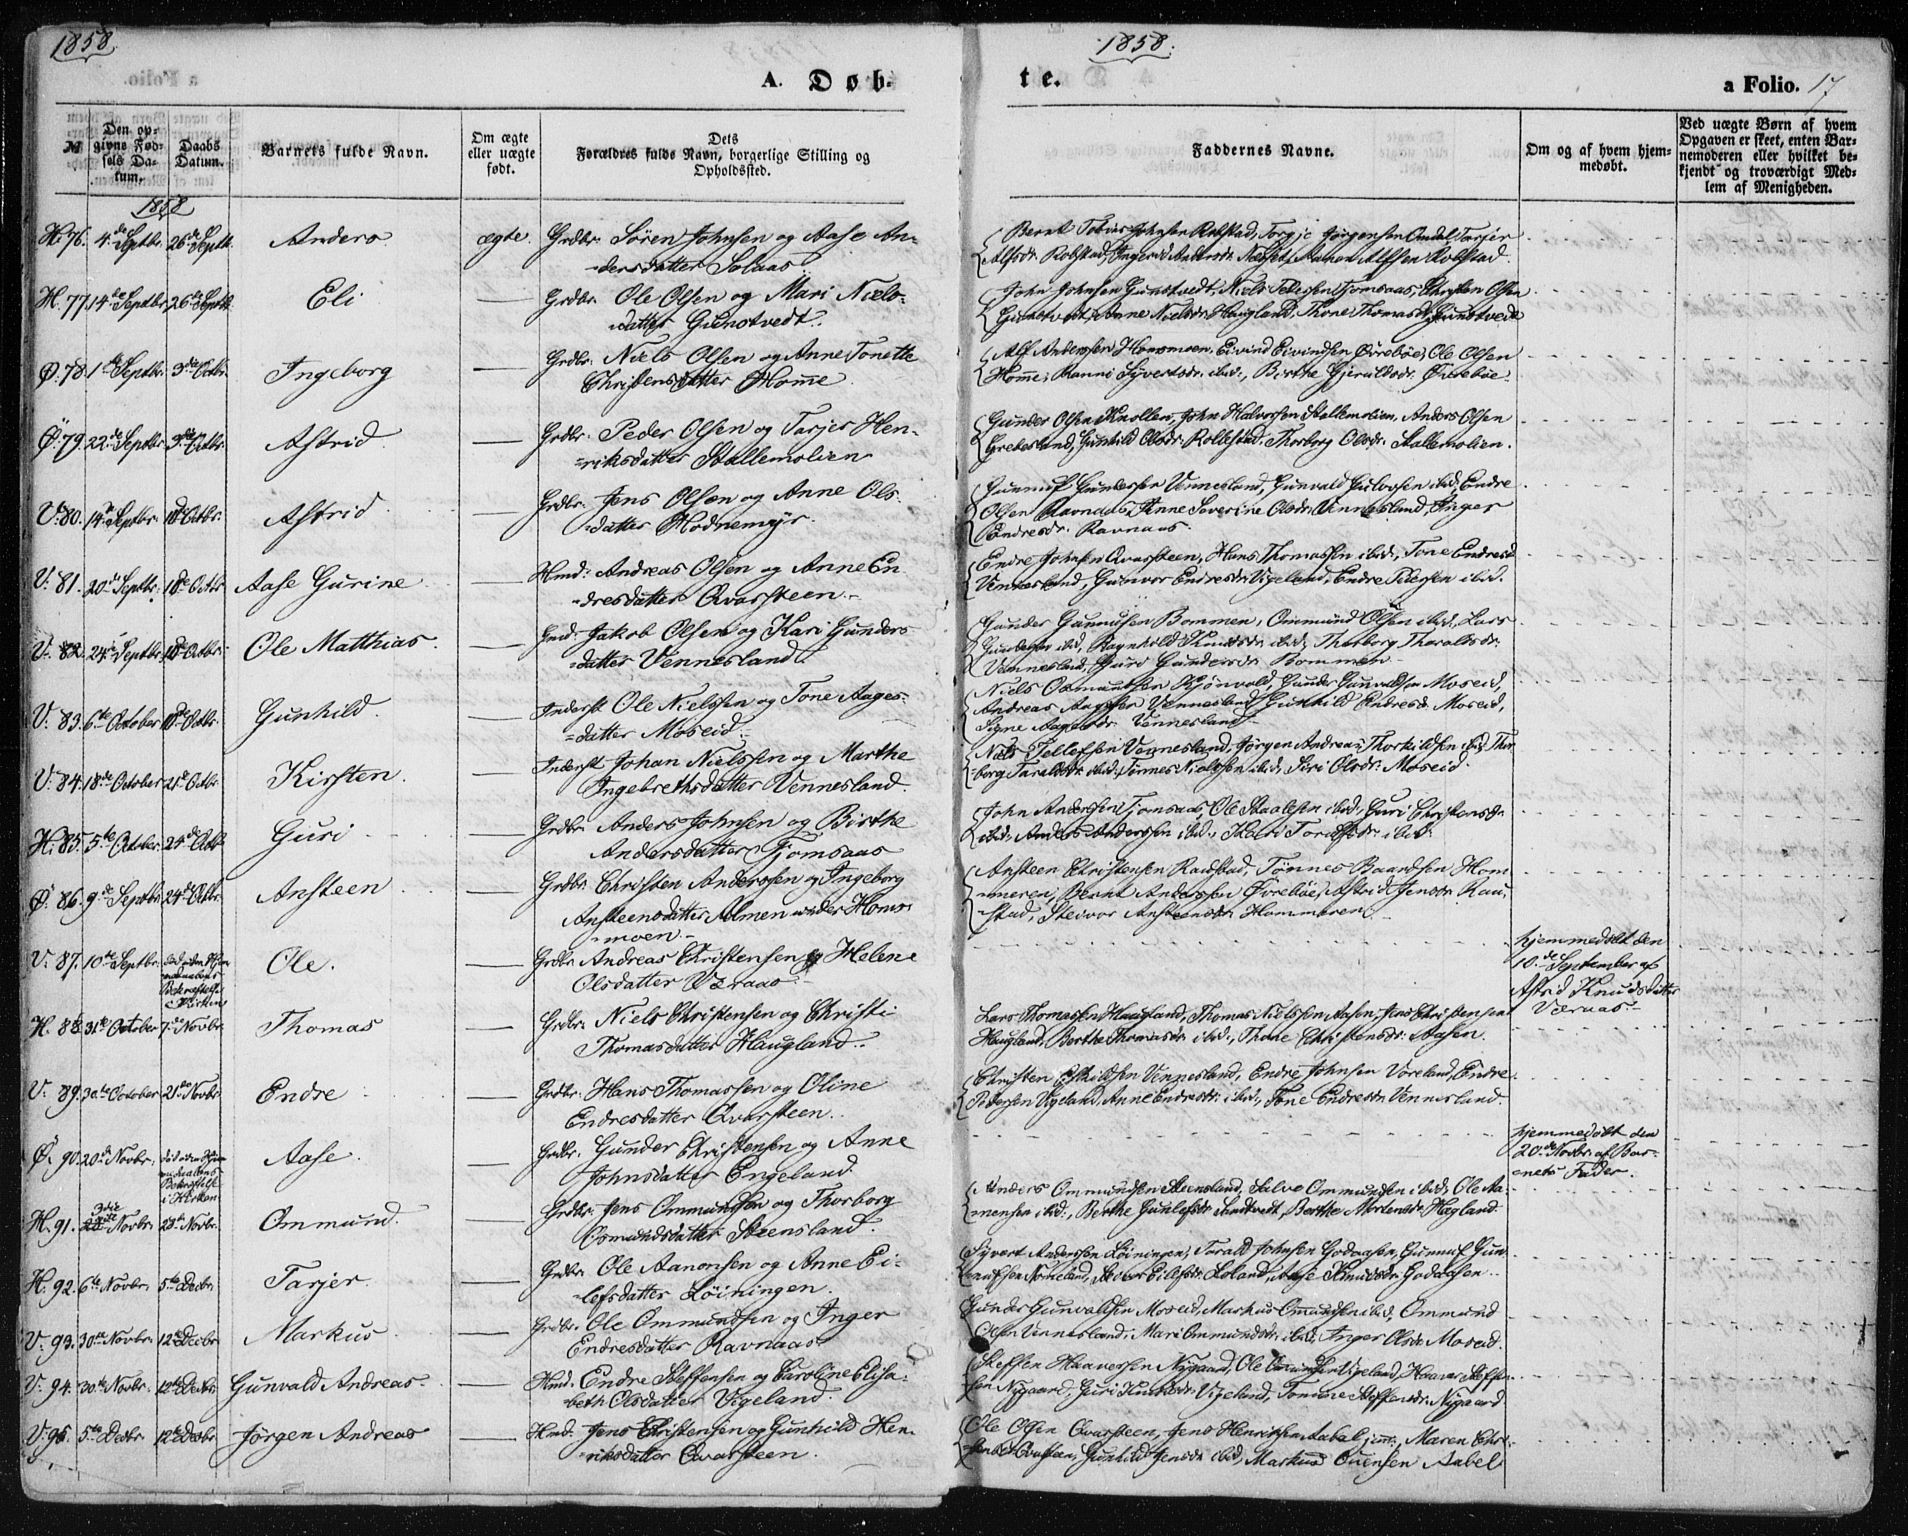 1858.
1858.
A. Døb-
te.
a Folio. 17
№
Den opgivne Fødsels Datum.
Daabs Datum.
Barnets fulde Navn.
Om ægte eller uægte født.
Dets Forældres fulde Navn, borgerlige Stilling og Opholdssted.
Faddernes Navne.
Om og af hvem hjemmedøbt.
Ved uægte Børn af hvem Opgaven er skeet, enten Barnemoderen eller hvilket bekjendt og troværdigt Medlem af Menigheden.
1858
H. 76. 4de Septbr. 26de Septbr. Anders. ægte. Grdbr. Sören Johnsen og Aase An-
=dersdatter Solaas
Bernt Tobias Johnsen Robstad, Torgje Jörgensen Omdal, Tarjer
Alfsdr. Robstad, Ingerid Andersdr., Aanon Alfsen Robstad.
H. 77. 14de Septbr. 26de Septbr. Eli — Grdbr. Ole Olsen og Mari Niels-
datter Gunstvedt.
John Johnsen Gunstvedt, Niels Tellefsen Fjomsaas, Christen Olsen
Gunstvedt, Anne Nielsdr. Haugland, Thone Thomasdr. Gunstvedt
Ø. 78. 1ste Septbr. 3die Octbr. Ingeborg — Grdbr. Niels Olsen og Anne Tonette
Christensdatter Homme.
Alf Anderssen Homsmoen, Eivind Eivindsen Øvrebøe, Ole Olsen
Homme, Ranni Syvertsdr. ibid., Birthe Gjeruldsdr. Øvrebøe.
Ø. 79. 22de Septbr. 3die Octbr. Astrid — Grdbr. Peder Olsen og Tarjer Hen-
=riksdatter Stallemolien
Gunder Olsen Knollen, John Halvorsen Stallemolien, Anders Olsen
Grebesland, Gunhild Olsdr. Rollestad, Thorborg Olsdr. Stallemolien.
V. 80. 14de Septbr. 10de Octbr. Astrid — Grdbr. Jens Olsen og Anne Ols-
datter Hodnemyr.
Gunnuf Gundersen Vennesland, Gunvald ibid, Endre
Olsen Ravnaas, Anne Severine Olsdr. Vennesland, Inger
Endresdr. Ravnaas.
V. 81. 20de Septbr. 10de Octbr. Aase Gurine — Hmd. Andreas Olsen og Anne En
=dresdatter Qvarsteen.
Endre Johnsen Qvarsteen, Hans Thomassen ibid., Tone Endresd.
Vennesland, Gunvor Endresdr. Vigeland, Endre Pedersen ibid.
V. 82. 24de Septbr. 10de Octbr. Ole Matthias. — Hmd. Jakob Olsen og Kari Gunders
=datter Vennesland.
Gunder Gunnufsen Bommen, Ommund Olsen ibid, Lars
Gundersen ibid, Ragnhild Knudsdr. ibid, Thorborg Tharalsdr.
Vennesland, Guro Gundersdr. Bommen.
V. 83. 6te October 10de Octbr. Gunhild. — Inderst Ole Nielssen og Tone Aages-
=datter Moseid.
Niels Osmundsen Kjønvold, Gunder Gunvaldsen Moseid,
Andreas Aagesen Vennesland, Gunhild Endresdr. Moseid,
Signe Aagesdr. Vennesland
V. 84. 18de October 21de Octbr. Kirsten. — Inderst Johan Nielssen og Marthe
Ingebrethsdatter Vennesland.
Niels Tellefsen Vennesland, Jörgen Andreas Thorkildsen ibid, Thor
borg Taraldsdr. ibid, Tønnes Nielssen ibid, Siri Olsdr. Moseid.
H. 85. 5te October 24de Octb. Guri — Grdbr. Anders Johnsen og Birthe
Andersdatter Fjomsaas
John Anderssen Fjomsaas, Ole Staalesen ibid., Guri Christensdr.
ibid. Anders Anderssen ibid., Kari Tordsdr. ibid.
Ø. 86. 9de Septbr. 24de Octbr. Ansteen — Grdbr. Christen Anderssen og Ingeborg
Ansteensdatter Almen under Homs-
=moen.
Ansteen Christensen Raustad, Tønnes Baardsen Hom-
meren, Bernt Anderssen Øvrebøe, Astrid Jensdr. Rau-
=stad, Stevor Ansteensdr. Hommeren.
V. 87. 10de Septbr. død uden Daabens Bekræftelse i Kirken Ole. — Grdbr. Andreas Christensen og Helene
Olsdatter Væraas.
hjemmedøbt den
10de September af
Astrid Knudsdatter
Væraas.
H. 88. 31te October 7de Novbr. Thomas — Grdbr. Niels Christensen og Christi
Thomasdatter Haugland.
Lars Thomassen Haugland, Thomas Nielssen Aasen, Jens Christensen
Haugland, Berthe Thomasdr. ibid., Thone Christensdr. Aasen.
V. 89. 30te October 21de Novbr. Endre — Grdbr. Hans Thomassen og Oline
Endresdatter Qvarsteen.
Christen Eskildsen Vennesland, Endre Johnsen Voreland, Endre
Pedersen Vigeland, Anne Endresdr. ibid., Tone Endresdr. Vennesland.
Ø. 90. 20de Novbr. død uden Daabens Bekræftelse i Kirken Aase. — Grdbr. Gunder Christensen og Anne
Johnsdatter Engeland.
hjemmedøbt den
20de Novbr. af Bar-
nets Fader.
H. 91. 3die Novbr. 28de Novbr. Ommund. — Grdbr. Jens Ommundsen og Thorborg
Osmundsdatter Steensland.
Anders Ommundsen Steensland, Salve Ommundsen ibid., Ole Aa-
mensen ibid., Berthe Gunlefsdr. Gunstvedt, Berthe Mortensdr. Hægland
H. 92. 6te Novbr. 5te Decbr. Tarjer. — Grdbr. Ole Aanonsen og Anne Ei-
=lefsdatter Løiningen.
Syvert Anderssen Løiningen, Tarald Johnsen Godaasen, Gunnuf Gun-
naufsen, Stevor Eilefsdr. Loland, Aase Knudsdr. Godaasen.
V. 93. 30te Novbr. 12te Decbr. Markus. — Grdbr. Ole Ommundsen og Inger
Endresdatter Ravnaas
Gunder Gunvaldsen Moseid, Markus Omundsen ibid, Ommund
Olsen Vennesland, Mari Ommundsdr. ibid, Inger Olsdr. Moseid.
V. 94. 30te Novbr. 12te Decbr. Gunvald Andreas. — Hmd. Endre Steffensen og Caroline Elisa-
beth Olsdatter Vigeland
Steffen Haaversen Nygaard, Ole Vigeland, Haaver Steffen-
sen Nygaard, Guri Knudsdr. Vigeland, Tomine Steffensdr. Nygaard
V. 95. 5te Decbr. 12te Decbr. Jørgen Andreas — Hmd. Jens Christensen og Gunhild Hen-
=riksdatter Qvarsteen.
Ole Olsen Qvarsteen, Jens Henriksen Aabel jun., Maren Chri-
stensdr. Qvarsteen, Gunhild Jensdr. ibid, Markus Evensen Aabel